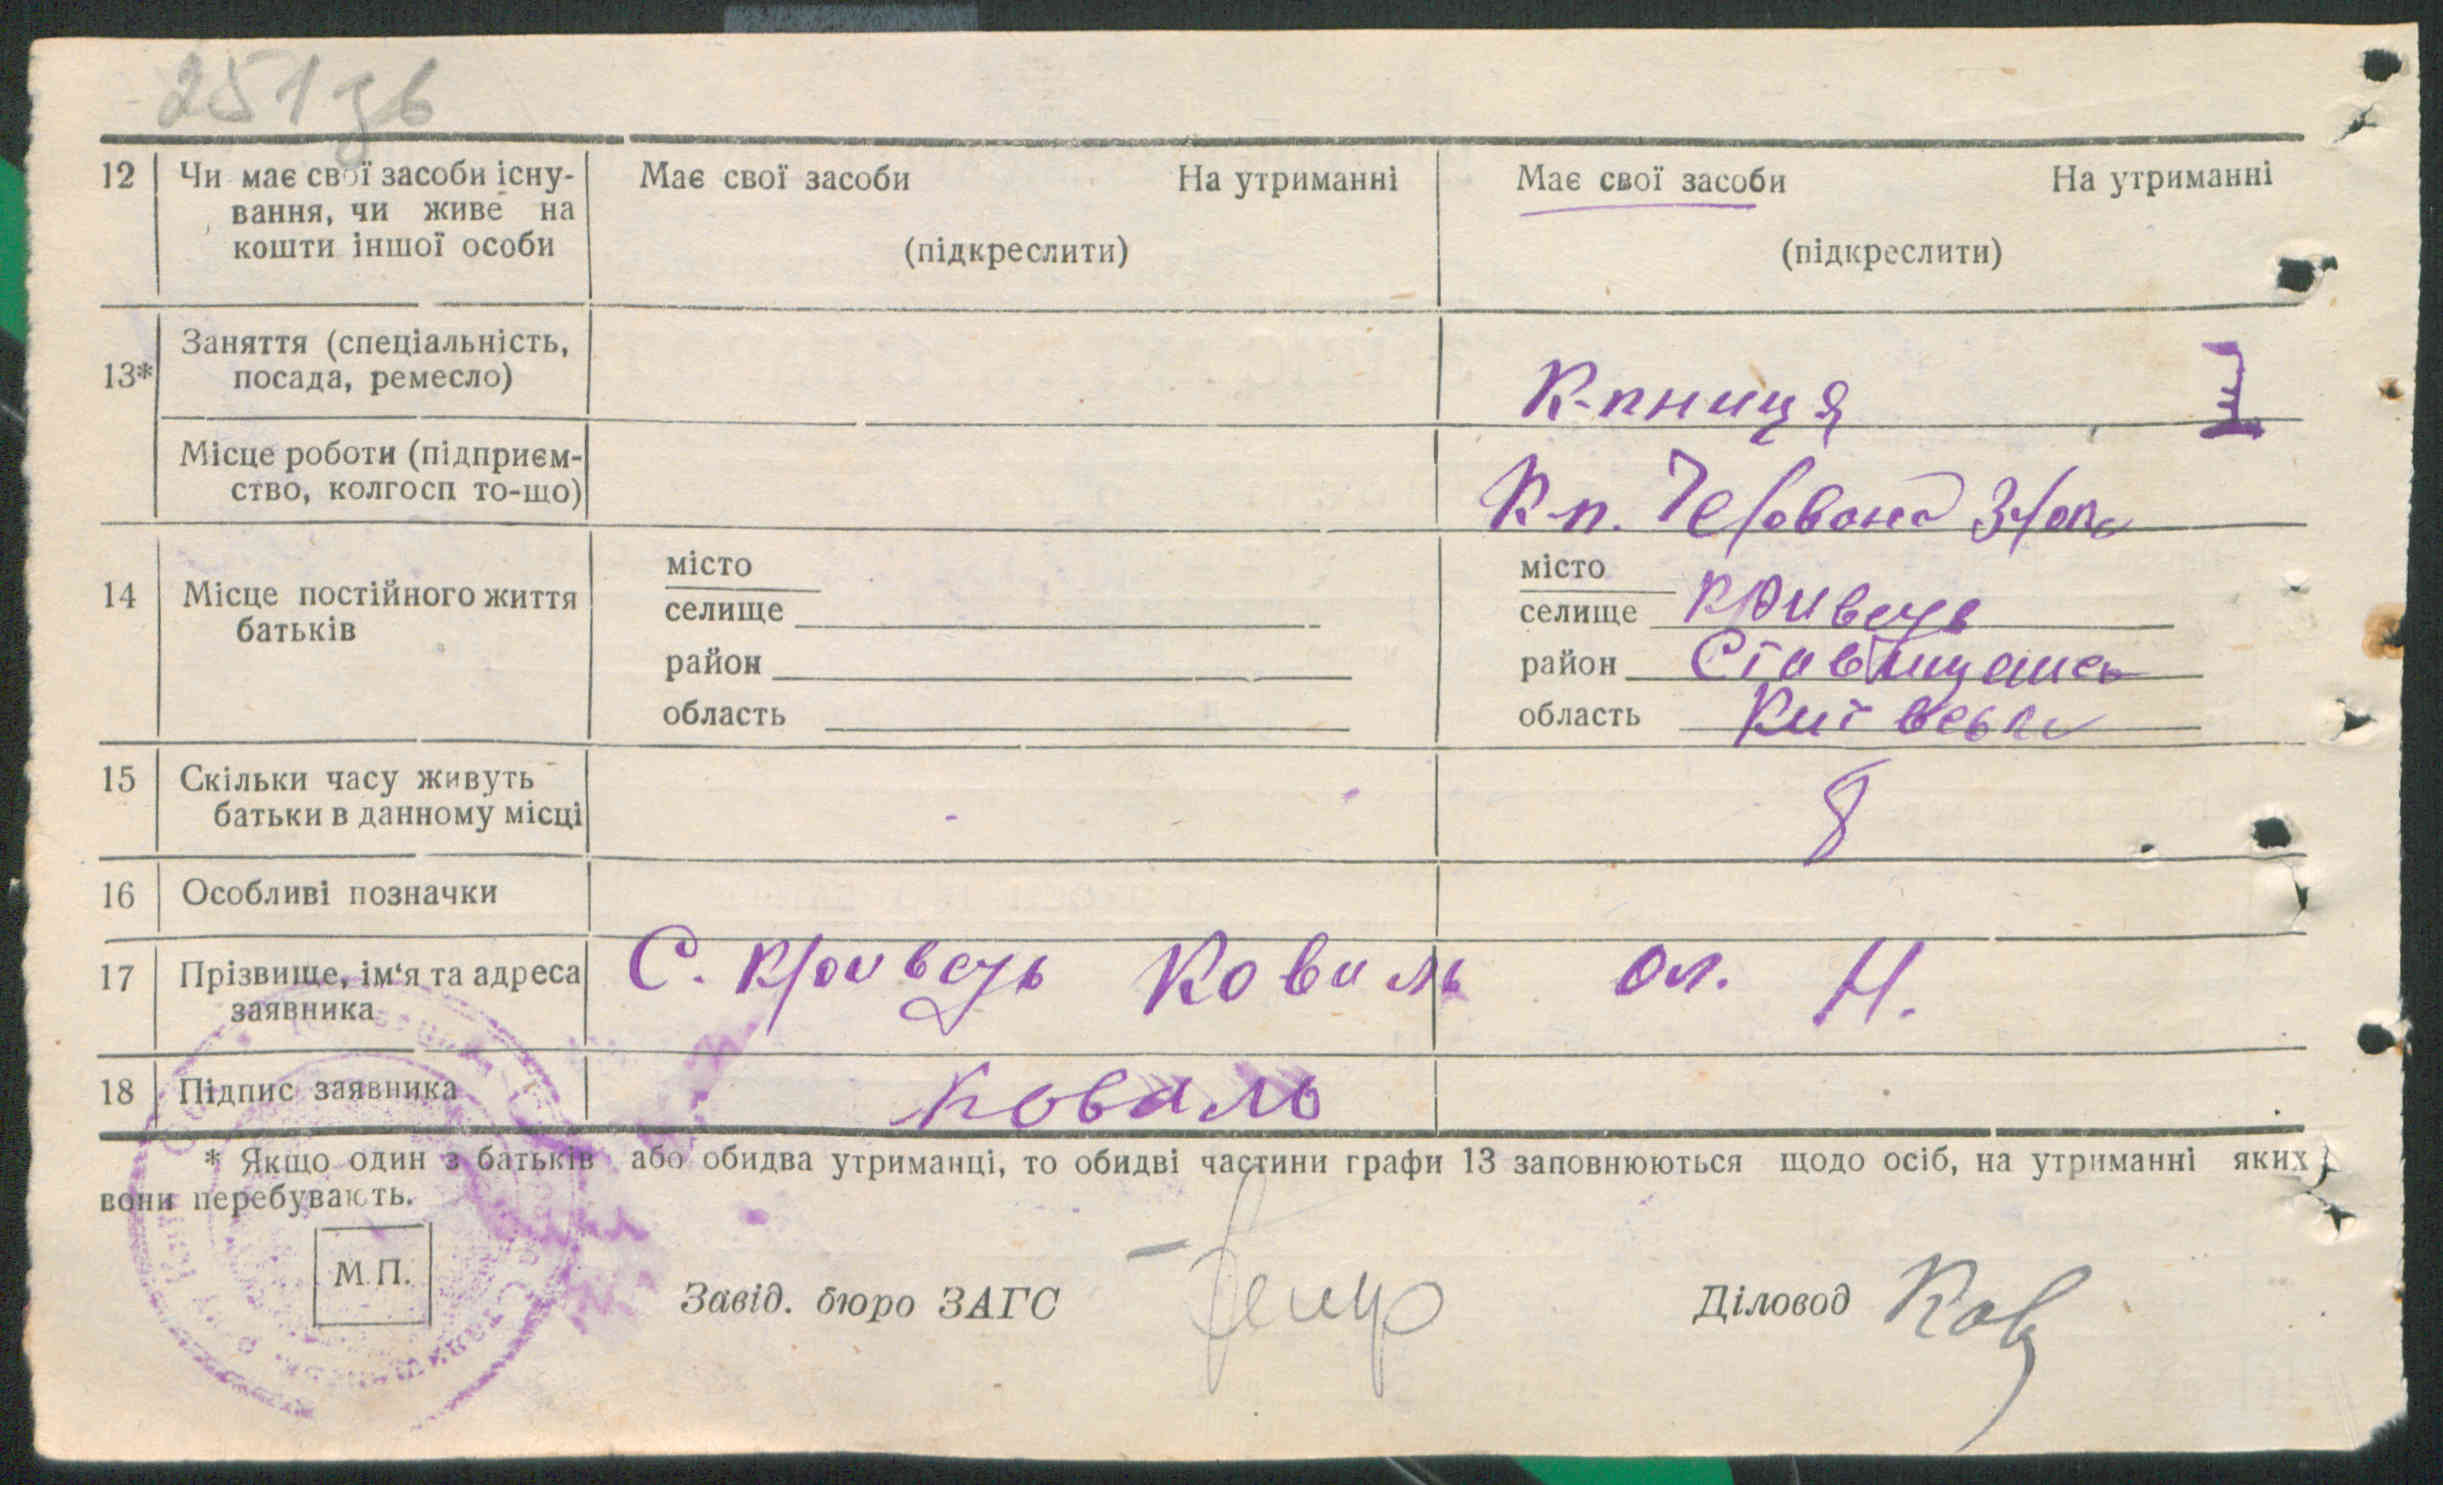 251 зв
12 Чи має свої засоби існу- Має свої засоби На утриманні Має свої засоби На утриманні
вання, чи живе на
кошти іншої особи (підкреслити) (підкреслити)
Заняття (спеціальність,
13* посада, ремесло) К-пниця
Місце роботи (підприєм-
ство, колгосп то-що) К-п. Червона
місто місто
14 Місце постійного життя селище селище Кривець
батьків
район район Ставищансь
область область Київська
15 Скільки часу живуть
батьки в данному місці 8
16 Особливі позначки
17 Прізвище, ім'я та адреса С. Кривець Коваль Ол. Н.
заявника
18 Підпис заявника Коваль
* Якщо один з батьків або обидва утриманці, то обидві частини графи 13 заповнюються щодо осіб, на утриманні яких
вони перебувають.
М.П.
Завід. бюро ЗАГС Діловод Ков